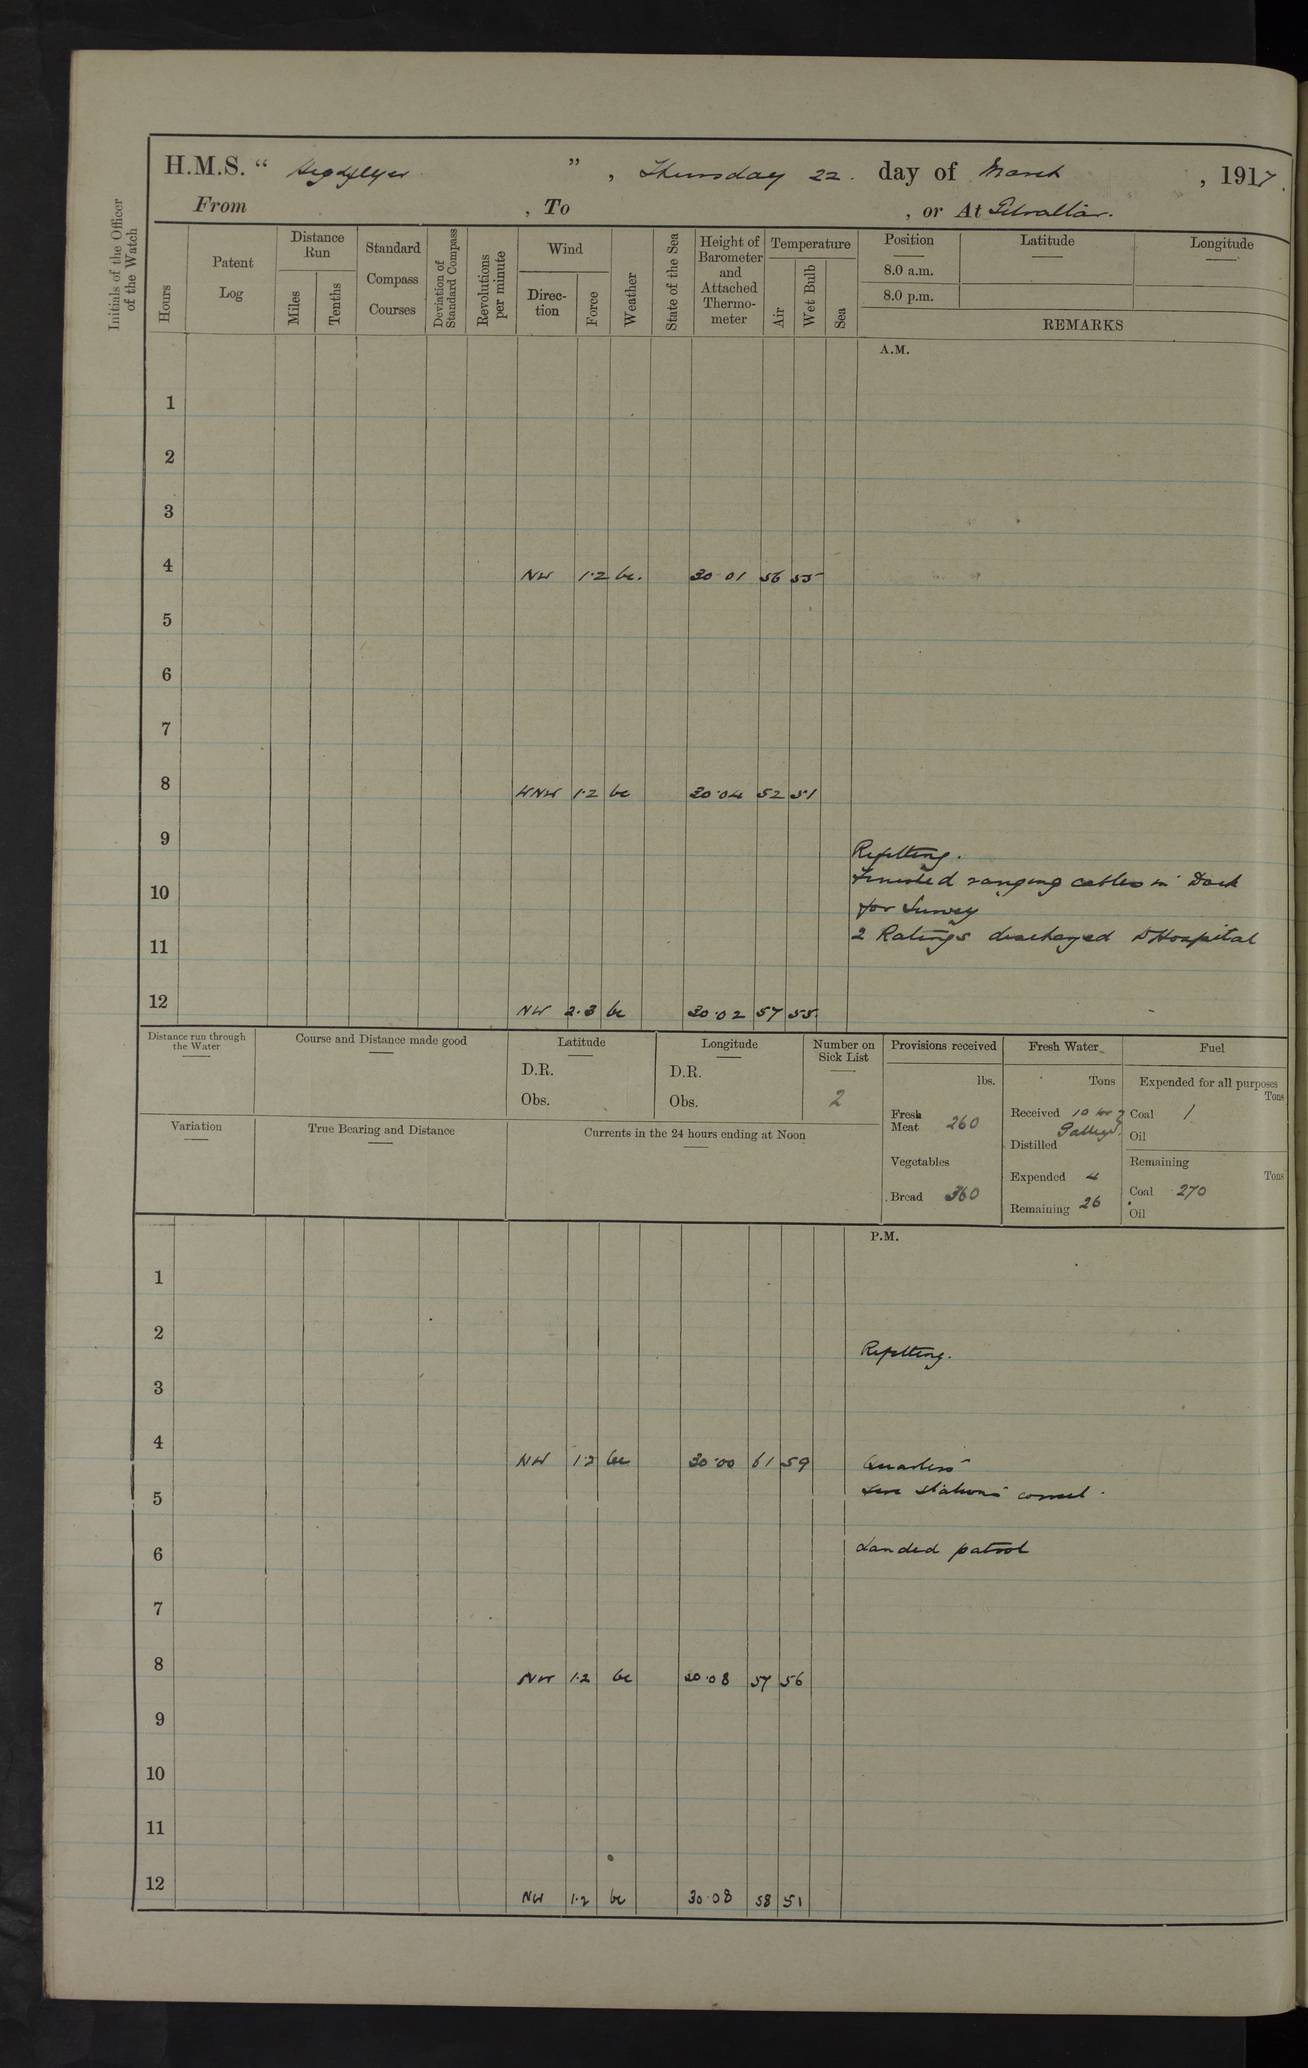 H.M.S. “ Highflyer ”, Thursday 22. day of March , 1917.
From , To , or At Gibraltar.
Initials of the Officer of the Watch
Hours
Patent Log
Distance Run
Miles
Tenths
Standard Compass Courses
Deviation of Standard Compass
Revolutions per minute
Wind
Direction
Force
Weather
State of the Sea
Height of Barometer and Attached Thermometer
Temperature
Air
Wet Bulb
Sea
Position Latitude Longitude
8.0 a.m.
8.0 p.m.
REMARKS
A.M.
1
2
3
4 NW 1.2 bc. 30.01 56 55
5
6
7
8 WNW 1.2 bc 30.04 52 51
9 Refitting.
10 Finished ranging cables in Dock
for Survey
11 2 Ratings discharged to Hospital
12 NW 2.3 bc 30.02 57 55.
Distance run through the Water
Course and Distance made good
Latitude
D.R.
Obs.
Longitude
D.R.
Obs.
Number on Sick List
2
Variation
True Bearing and Distance
Currents in the 24 hours ending at Noon
Provisions received
lbs.
Fresh Meat 260
Vegetables
Bread 360
Fresh Water
Tons
Received 10 for
Distilled
Expended 4
Remaining 26
Fuel
Expended for all purposes
Tons
Coal 1
Oil
Remaining
Tons
Coal 270
Oil
P.M.
1
2 Refitting.
3
4 NW 1.2 bc 30.00 61 59 Quarters
5 Fire stations correct.
6 Landed patrol
7
8 NW 1.2 bc 30.08 57 56
9
10
11
12 NW 1.2 bc 30.08 58 51